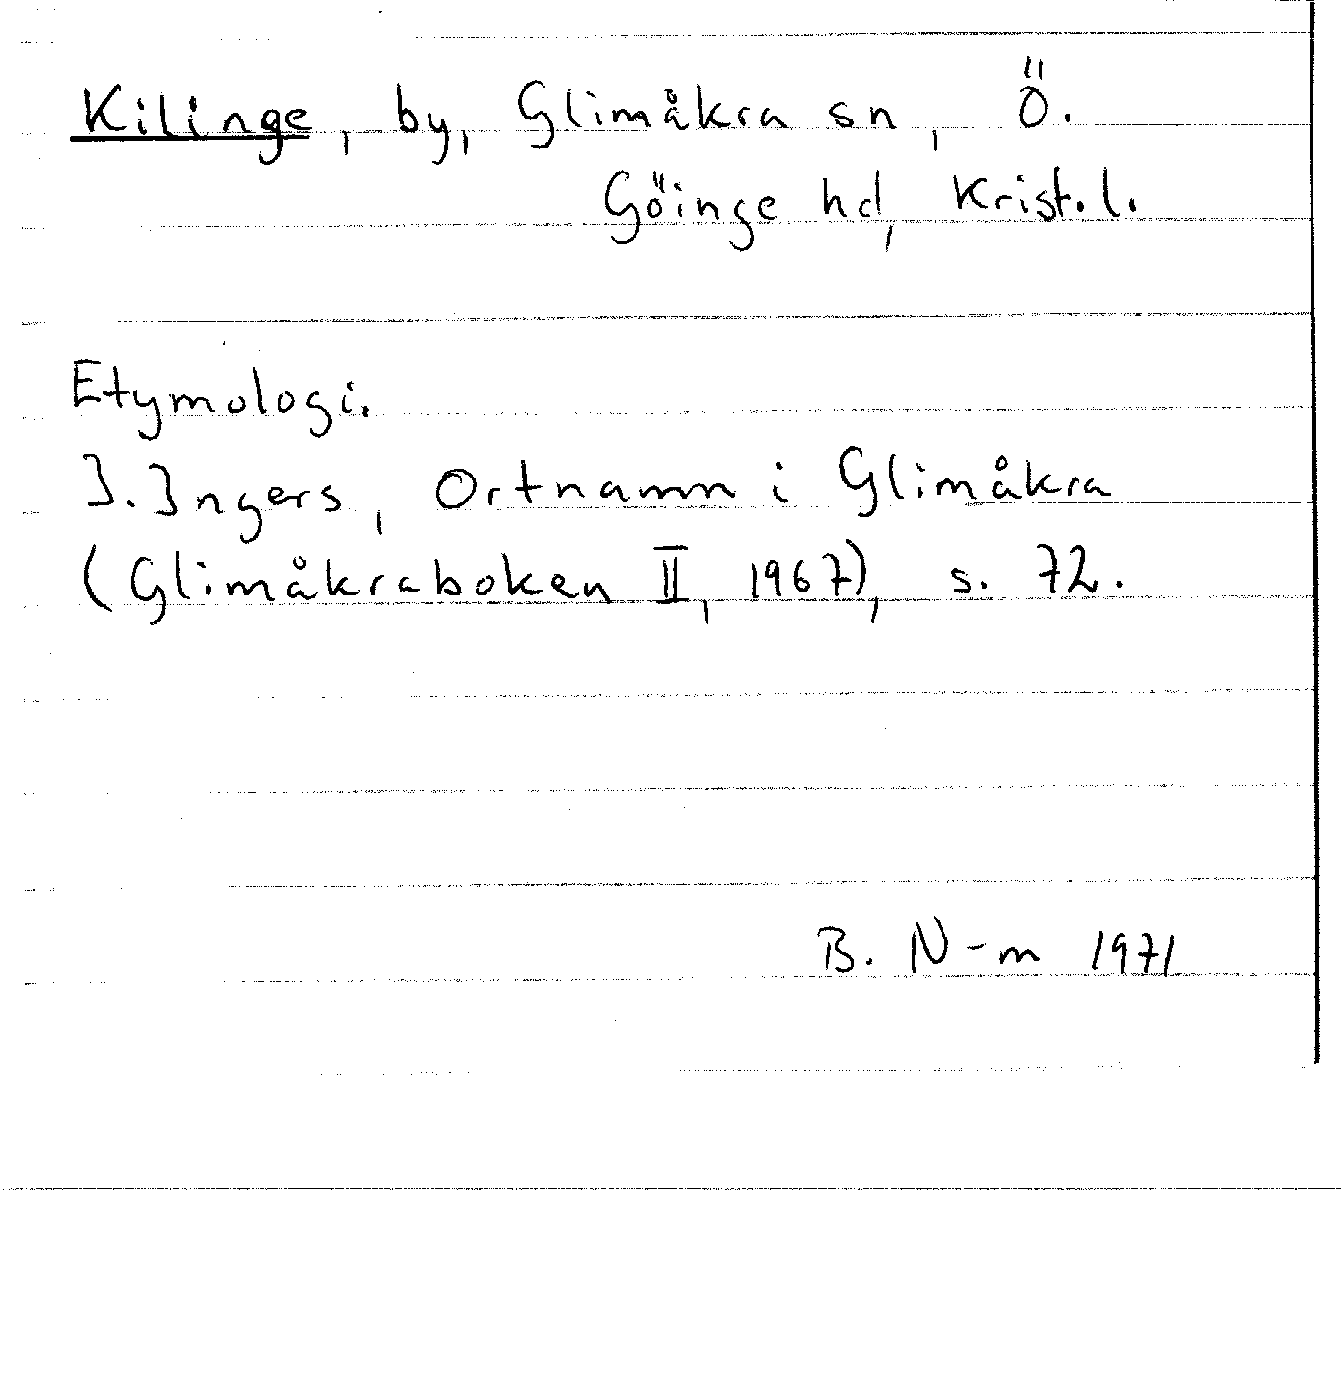 Kilinge, by, Glimåkra sn, Ö.
Göinge hd, Krist. l.
Etymologi.
I. Ingers, Ortnamn i Glimåkra
(Glimåkraboken II, 1967), s. 72.
B. N-m 1971